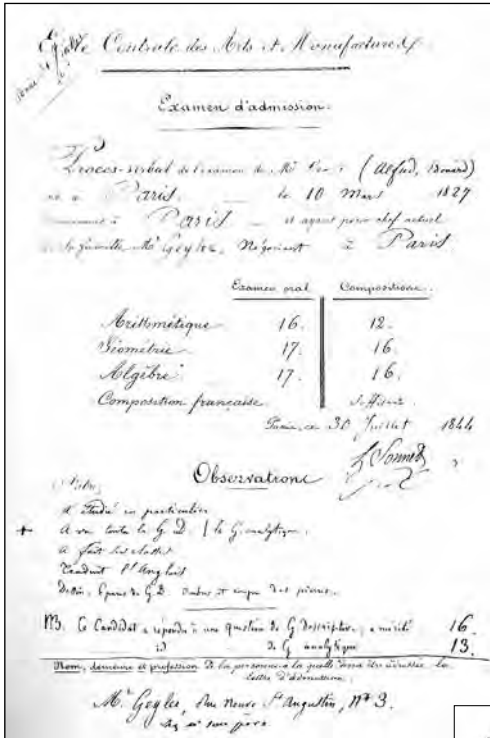 École Centrale des Arts et Manufactures.
Examen d'admission.
Procès-verbal de l'examen de Mr (Alfred, Édouard)
né à Paris le 10 Mars 1827
demeurant à Paris et ayant pour chef actuel
de sa famille Mr Geyler, Négociant à Paris
Examen oral Compositions.
Arithmétique 16. 12.
Géométrie 17. 16.
Algèbre 17. 16.
Composition française Suffisante
Paris, ce 30 Juillet 1844
Observations
A étudié en particulier
+ A vu toute la G. D. | la G. analytique.
A fait ses classes
Traduit l'Anglais
Dessin, Epures de G. D. Ombres et coupe des pierres.
NB. Ce Candidat a répondu à une question de G descriptive, a mérité 16
id de G analytique 13.
Nom, demeure et profession de la personne à laquelle devra être adressée la
lettre d'admission.
Mr Geyler, Rue Neuve St Augustin, No 3.